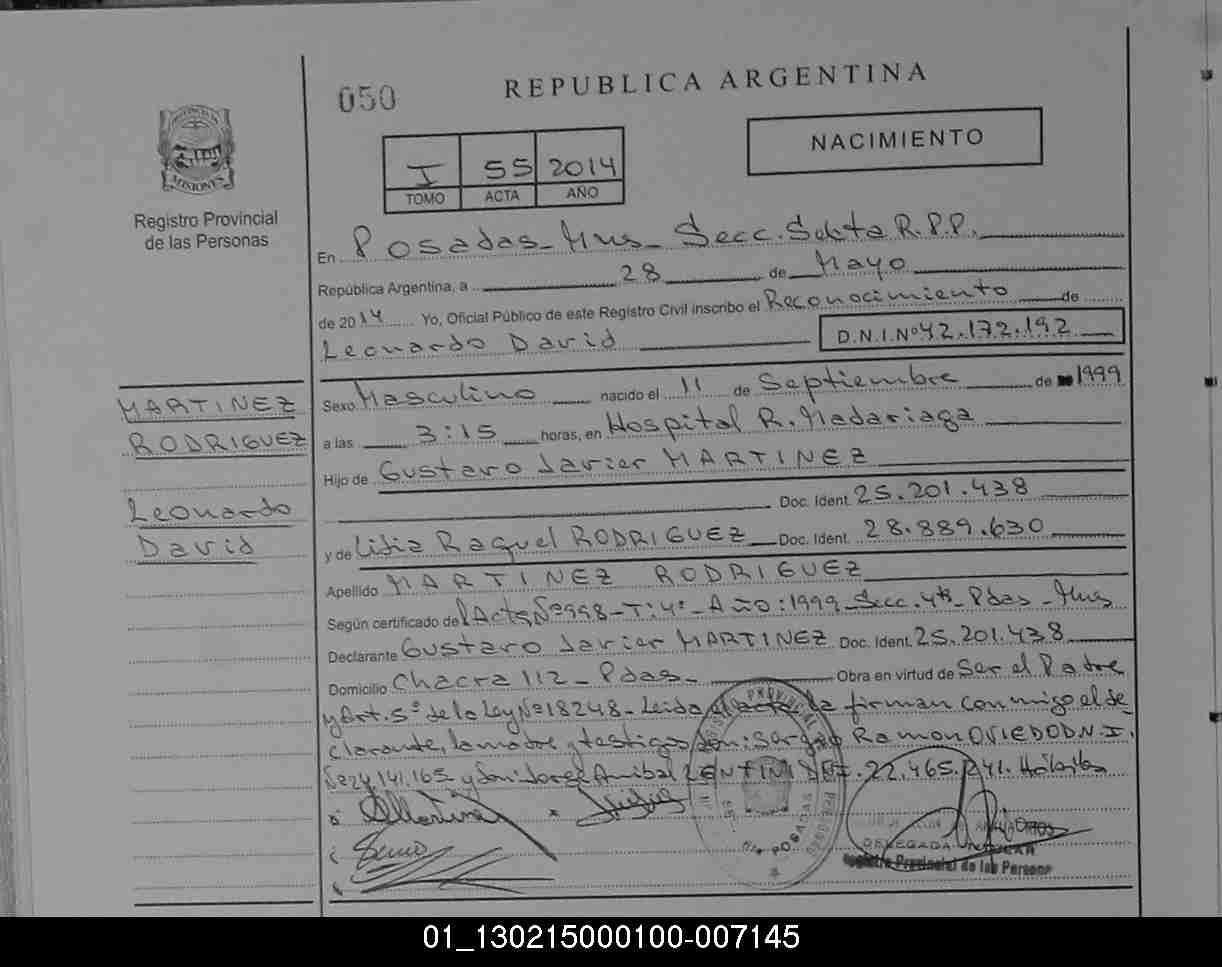 050
REPUBLICA ARGENTINA
NACIMIENTO
I 55 2014
TOMO ACTA AÑO
PROVINCIA DE MISIONES
Registro Provincial
de las Personas
En Posadas - Mns - Secc. Sexta R.P.P.
República Argentina, a 28 de Mayo
de 2014 Yo, Oficial Público de este Registro Civil inscribo el Reconocimiento de
Leonardo David D.N.I.Nº 42.172.192
MARTINEZ
RODRIGUEZ
Leonardo
David
Sexo Masculino nacido el 11 de Septiembre de 1999
a las 3:15 horas, en Hospital R. Madariaga
Hijo de Gustavo Javier MARTINEZ
Doc. Ident. 25.201.438
y de Lidia Raquel RODRIGUEZ Doc. Ident. 28.889.630
Apellido MARTINEZ RODRIGUEZ
Según certificado del Acta Nº 998 - T: 4º - Año: 1999 - Secc. 4ta - Pdas - Mns
Declarante Gustavo Javier MARTINEZ Doc. Ident. 25.201.438
Domicilio Chacra 112 - Pdas - Obra en virtud de Ser el Padre
y Art. 5º de la Ley Nº 18248 - Leida el acta la firman conmigo el de
clarante, la madre y testigos Ramon OVIEDO D.N.I.
Nº 24.141.165 y Don Jorge Anibal D.N.I. 22.465.241. Hábiles
DELEGADA
Registro Provincial de las Personas
01_130215000100-007145